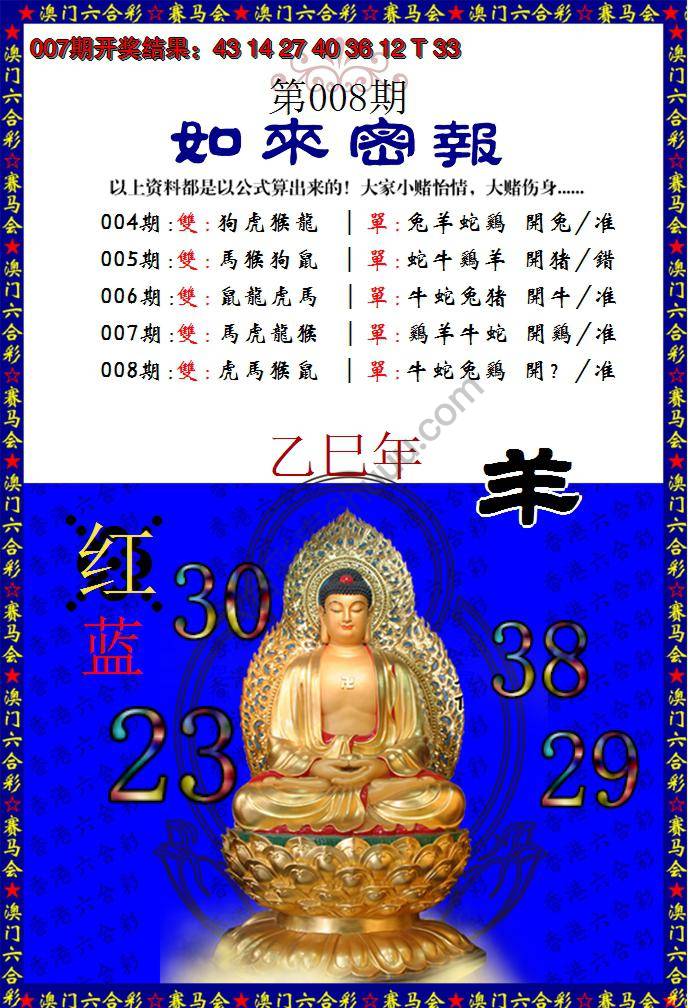 ★澳门六合彩☆赛马会★澳门六合彩☆赛马会★澳门六合彩☆赛马会★
007期开奖结果：43 14 27 40 36 12 T 33
第008期
如來密報
以上资料都是以公式算出来的！大家小赌怡情，大赌伤身......
004期:雙:狗虎猴龍 | 單:兔羊蛇鷄 開兔/准
005期:雙:馬猴狗鼠 | 單:蛇牛鷄羊 開猪/錯
006期:雙:鼠龍虎馬 | 單:牛蛇兔猪 開牛/准
007期:雙:馬虎龍猴 | 單:鷄羊牛蛇 開鷄/准
008期:雙:虎馬猴鼠 | 單:牛蛇兔鷄 開？/准
乙巳年
羊
红
蓝
30
38
23
29
香港六合彩
★澳门六合彩☆赛马会★澳门六合彩☆赛马会★澳门六合彩☆赛马会★